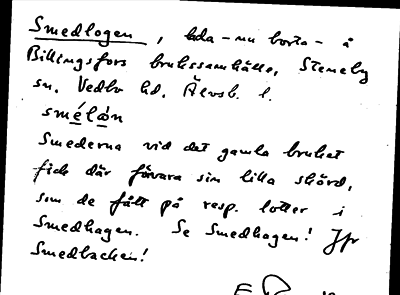 Smedlogen, lada – nu borta – å
Billingsfors brukssamhälle, Steneby
sn. Vedbo hd. Älvsb. l.
smélån
Smederna vid det gamla bruket
fick där förvara sin lilla skörd,
som de fått på resp. lotter i
Smedhagen. Se Smedhagen! Jfr
Smedbacken!